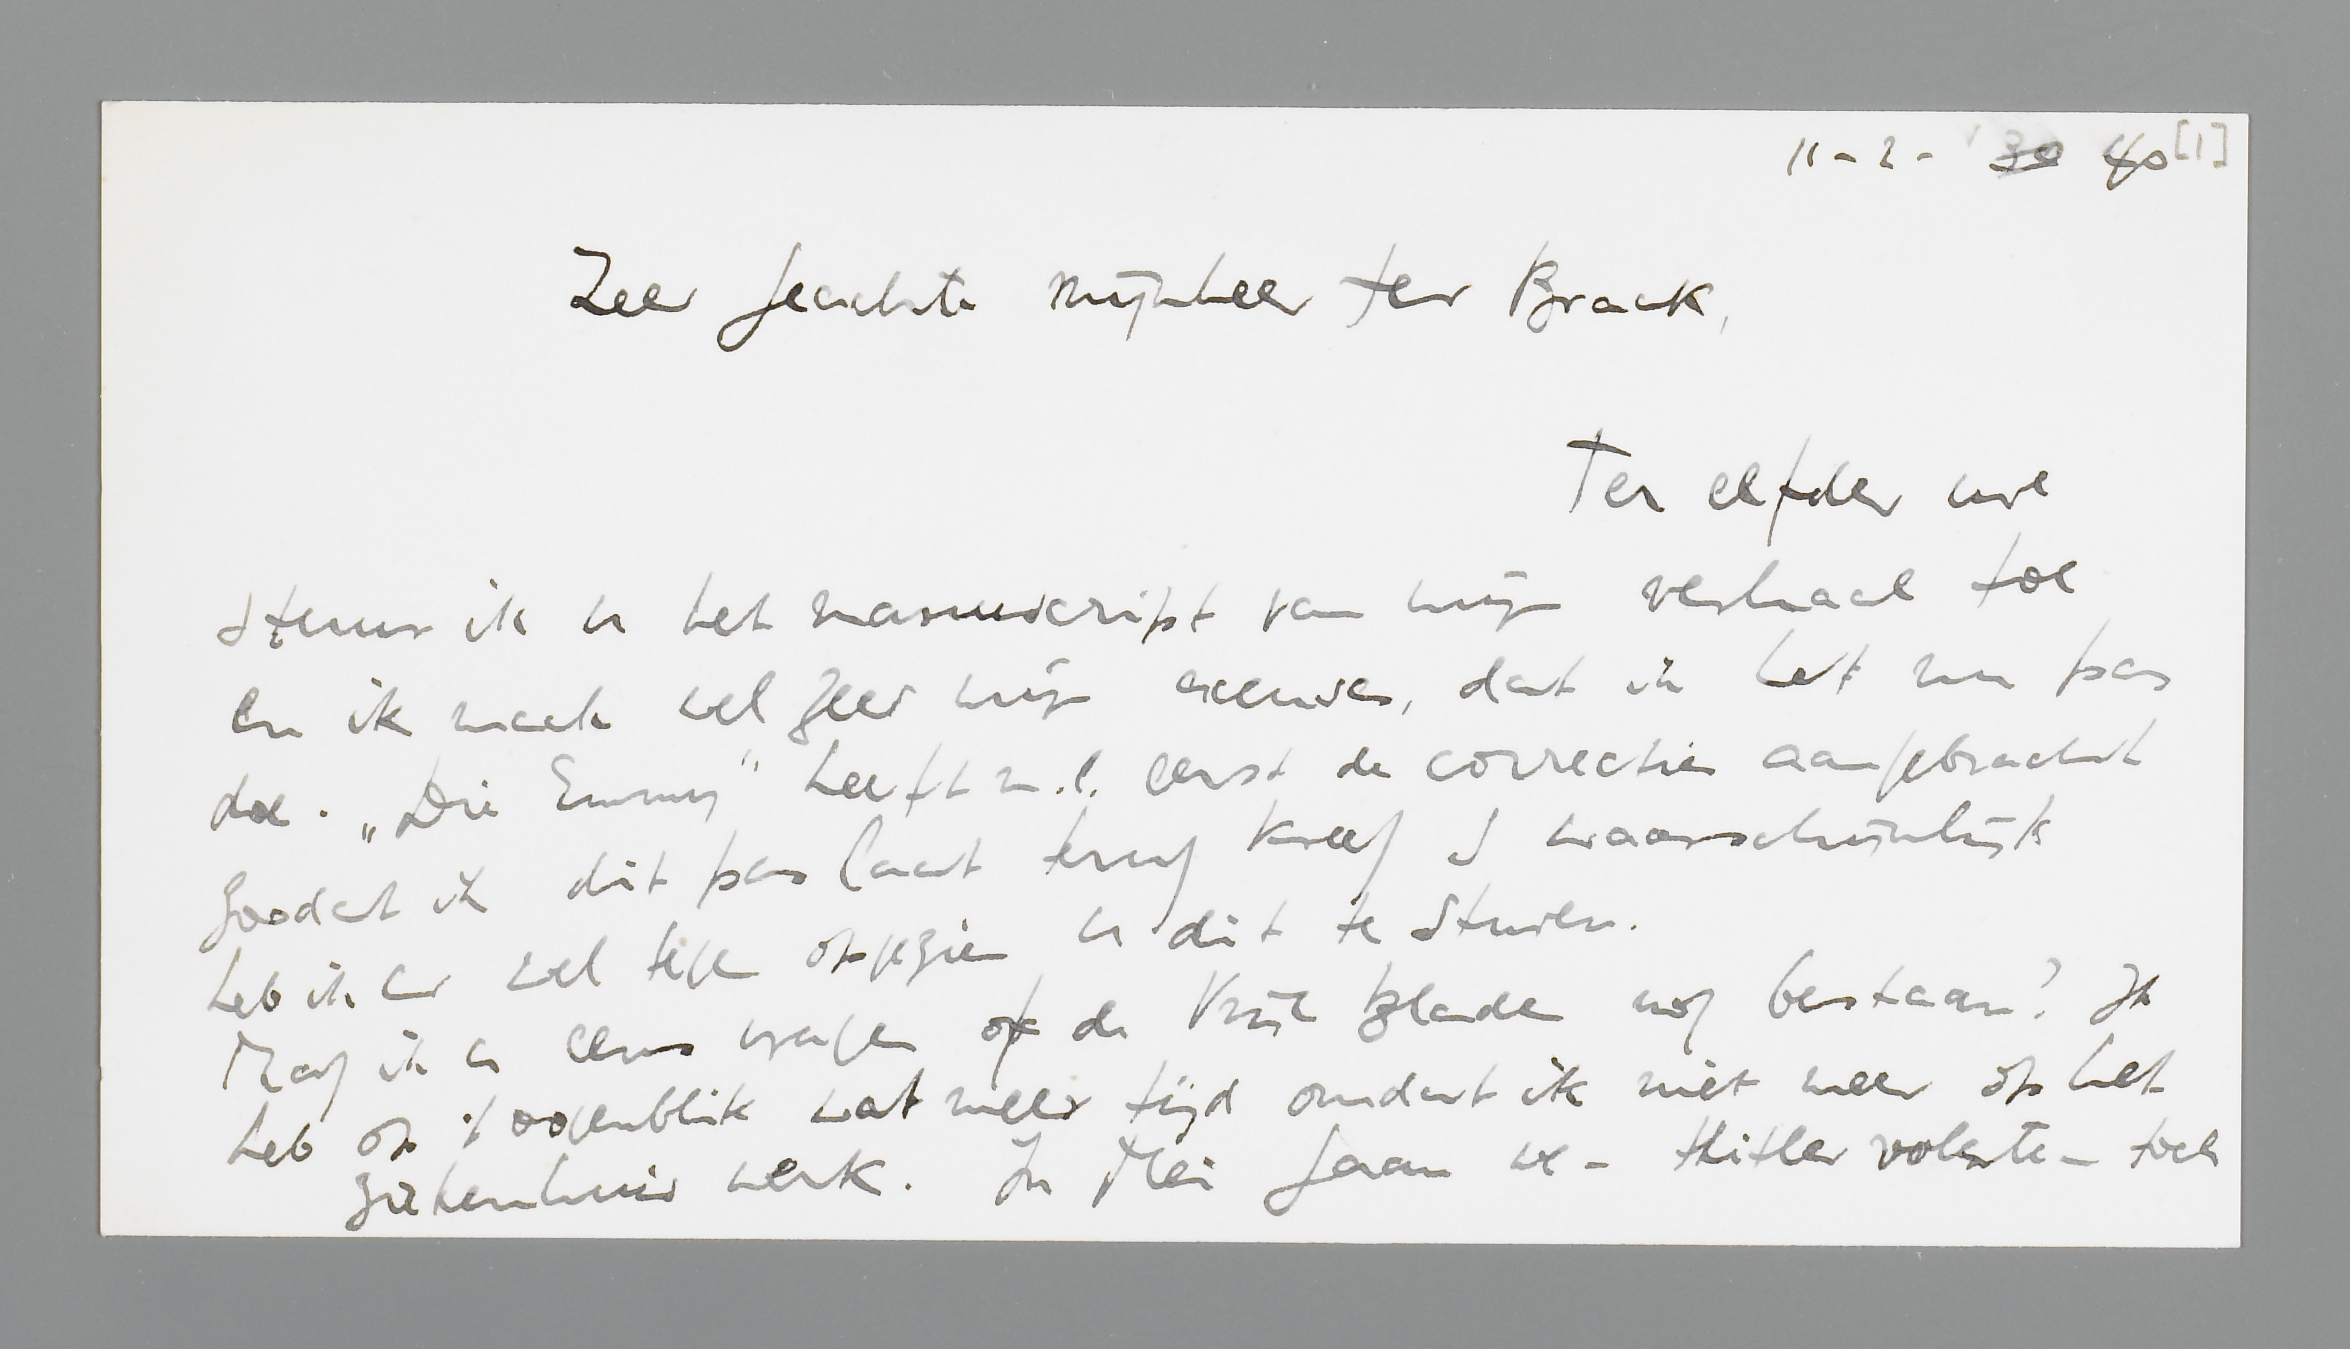 11-2- 30 40 [1]
Zeer geachte mijnheer ter Braak,
Ter elfder ure
stuur ik u het manuscript van mijn verhaal toe
en ik maak wel zeer mijn excuses, dat ik het nu pas
doe. „Die Emmy” heeft n.l. eerst de correctie aangebracht
zoodat ik dit pas laat terug kreeg & waarschijnlijk
heb ik er wel tegen opgezien u dit te sturen.
Mag ik u eens vragen of de Vrije Bladen nog bestaan? Ik
heb op 't oogenblik wat meer tijd omdat ik niet meer op het
ziekenhuis werk. In Mei gaan we - Hitler volente - toch